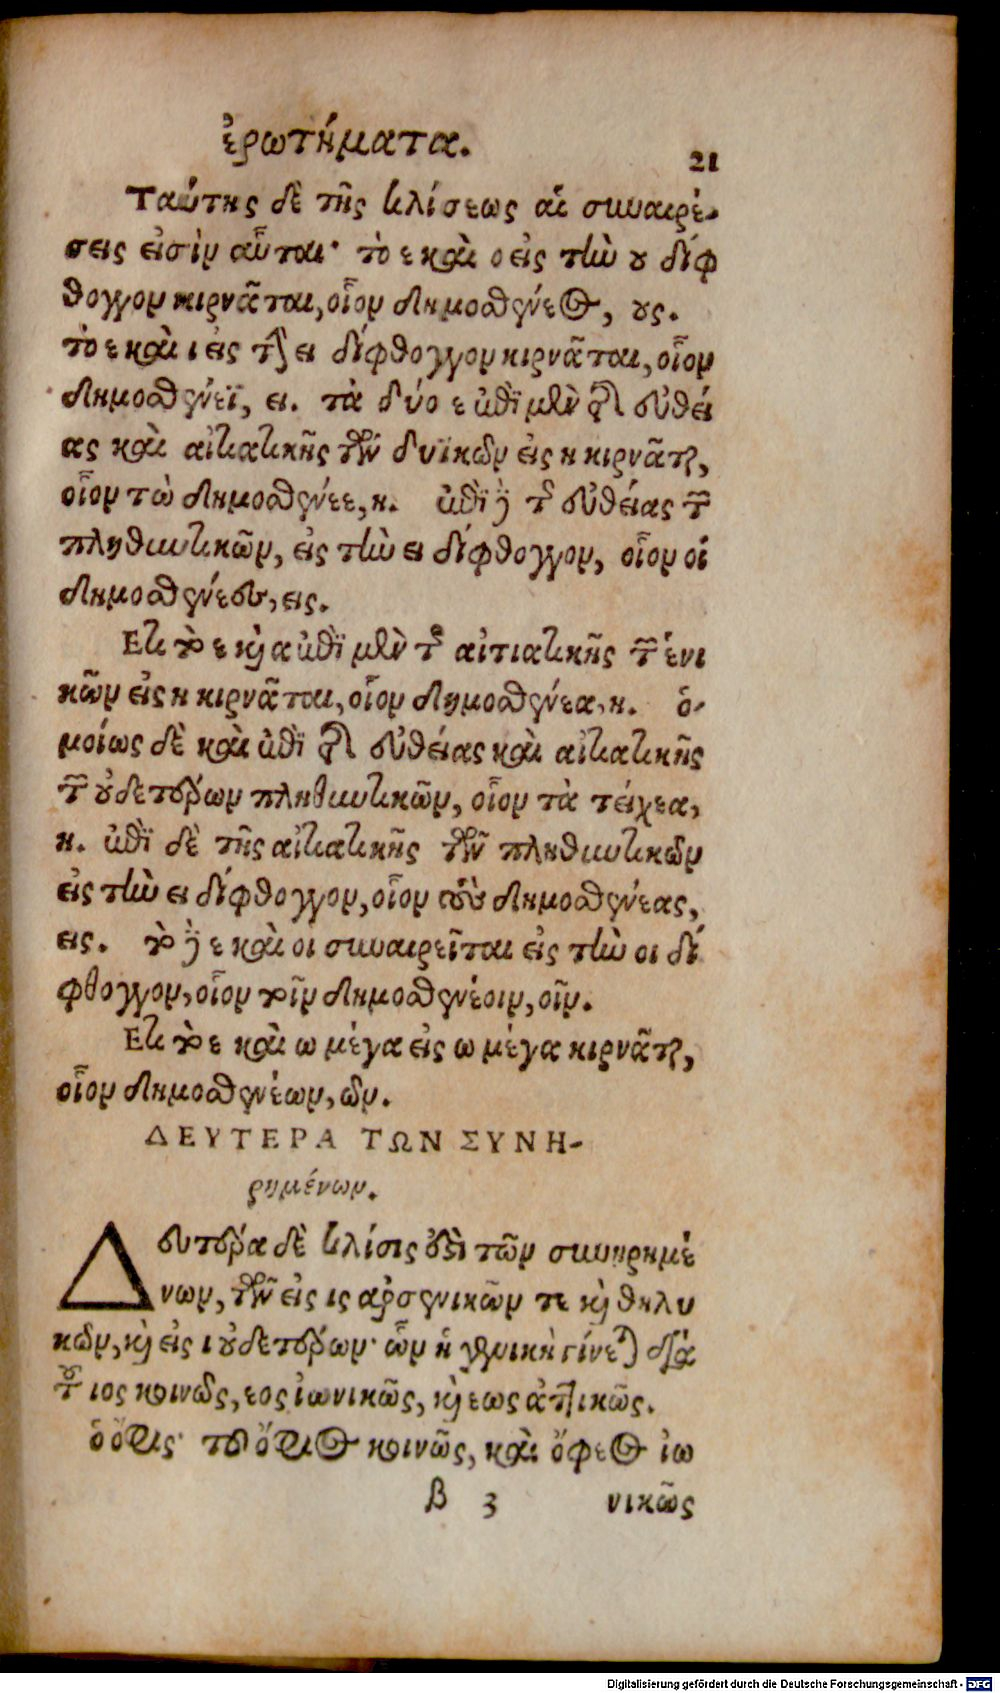 ἐρωτήματα.
21
Ταύτης δὲ τῆς κλίσεως αἱ συναιρέ-
σεις εἰσὶν αὗται· τὸ ε καὶ ο εἰς τὴν ου δίφ
θογγον κιρνᾶται, οἷον Δημοσθένεος, ους.
τὸ ε καὶ ι εἰς τὴν ει δίφθογγον κιρνᾶται, οἷον
Δημοσθένεϊ, ει. τὰ δύο ε ἐπὶ μὲν τῆς εὐθεί
ας καὶ αἰτιατικῆς τῶν δυϊκῶν εἰς η κιρνᾶται,
οἷον τὼ Δημοσθένεε, η. ἐπὶ δὲ τῆς εὐθείας τῶν
πληθυντικῶν, εἰς τὴν ει δίφθογγον, οἷον οἱ
Δημοσθένεες, εις.
Ετι τὸ ε καὶ α ἐπὶ μὲν τῆς αἰτιατικῆς τῶν ἑνι
κῶν εἰς η κιρνᾶται, οἷον Δημοσθένεα, η. ὁ-
μοίως δὲ καὶ ἐπὶ τῆς εὐθείας καὶ αἰτιατικῆς
τῶν οὐδετέρων πληθυντικῶν, οἷον τὰ τείχεα,
η. ἐπὶ δὲ τῆς αἰτιατικῆς τῶν πληθυντικῶν
εἰς τὴν ει δίφθογγον, οἷον τοὺς Δημοσθένεας,
εις. τὸ δὲ ε καὶ οι συναιρεῖται εἰς τὴν οι δί
φθογγον, οἷον τοῖν Δημοσθενέοιν, οῖν.
Ετι τὸ ε καὶ ω μέγα εἰς ω μέγα κιρνᾶται,
οἷον Δημοσθενέων, ῶν.
ΔΕΥΤΕΡΑ ΤΩΝ ΣΥΝΗ-
ρημένων.
Δευτέρα δὲ κλίσις ἐστὶ τῶν συνηρημέ
νων, τῶν εἰς ις ἀρσενικῶν τε καὶ θηλυ
κῶν, καὶ εἰς ι οὐδετέρων· ὧν ἡ γενικὴ γίνεται διὰ
τοῦ ιος κοινῶς, εος ἰωνικῶς, καὶ εως ἀττικῶς.
ὁ ὄφις· τοῦ ὄφιος κοινῶς, καὶ ὄφεος ἰω
β 3 νικῶς
Digitalisierung gefördert durch die Deutsche Forschungsgemeinschaft - DFG